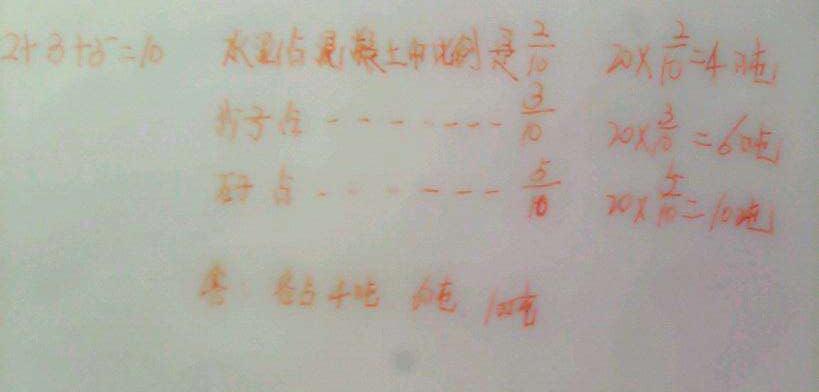 2+3+5=10 水泥占混凝土中比例是 2/10 20×2/10=4吨
沙子占 - - - - - - - - 3/10 20×3/10=6吨
石子占 - - - - - - - 5/10 20×5/10=10吨
答: 各占4吨 6吨 10吨